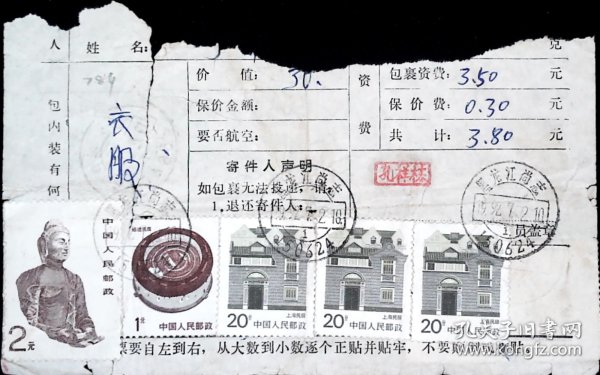 人 姓 名:
价 值: 30. 资 包裹资费: 3.50 元
保价金额: 保 价 费: 0.30 元
要否航空: 费 共 计: 3.80 元
包内装有何
衣服
寄件人声明
如包裹无法投递，请
1,退还寄件人:
黑龙江尚志
1992.7.2.10
1
150624
黑龙江尚志
1992.7.2.10
1
150624
员盖章
中国人民邮政
2元
福建民居
1元
中国人民邮政
上海民居
20分
中国人民邮政
上海民居
20分
中国人民邮政
上海民居
20分
中国人民邮政
票要自左到右，从大数到小数逐个正贴并贴牢，不要
贴
孔夫子旧书网